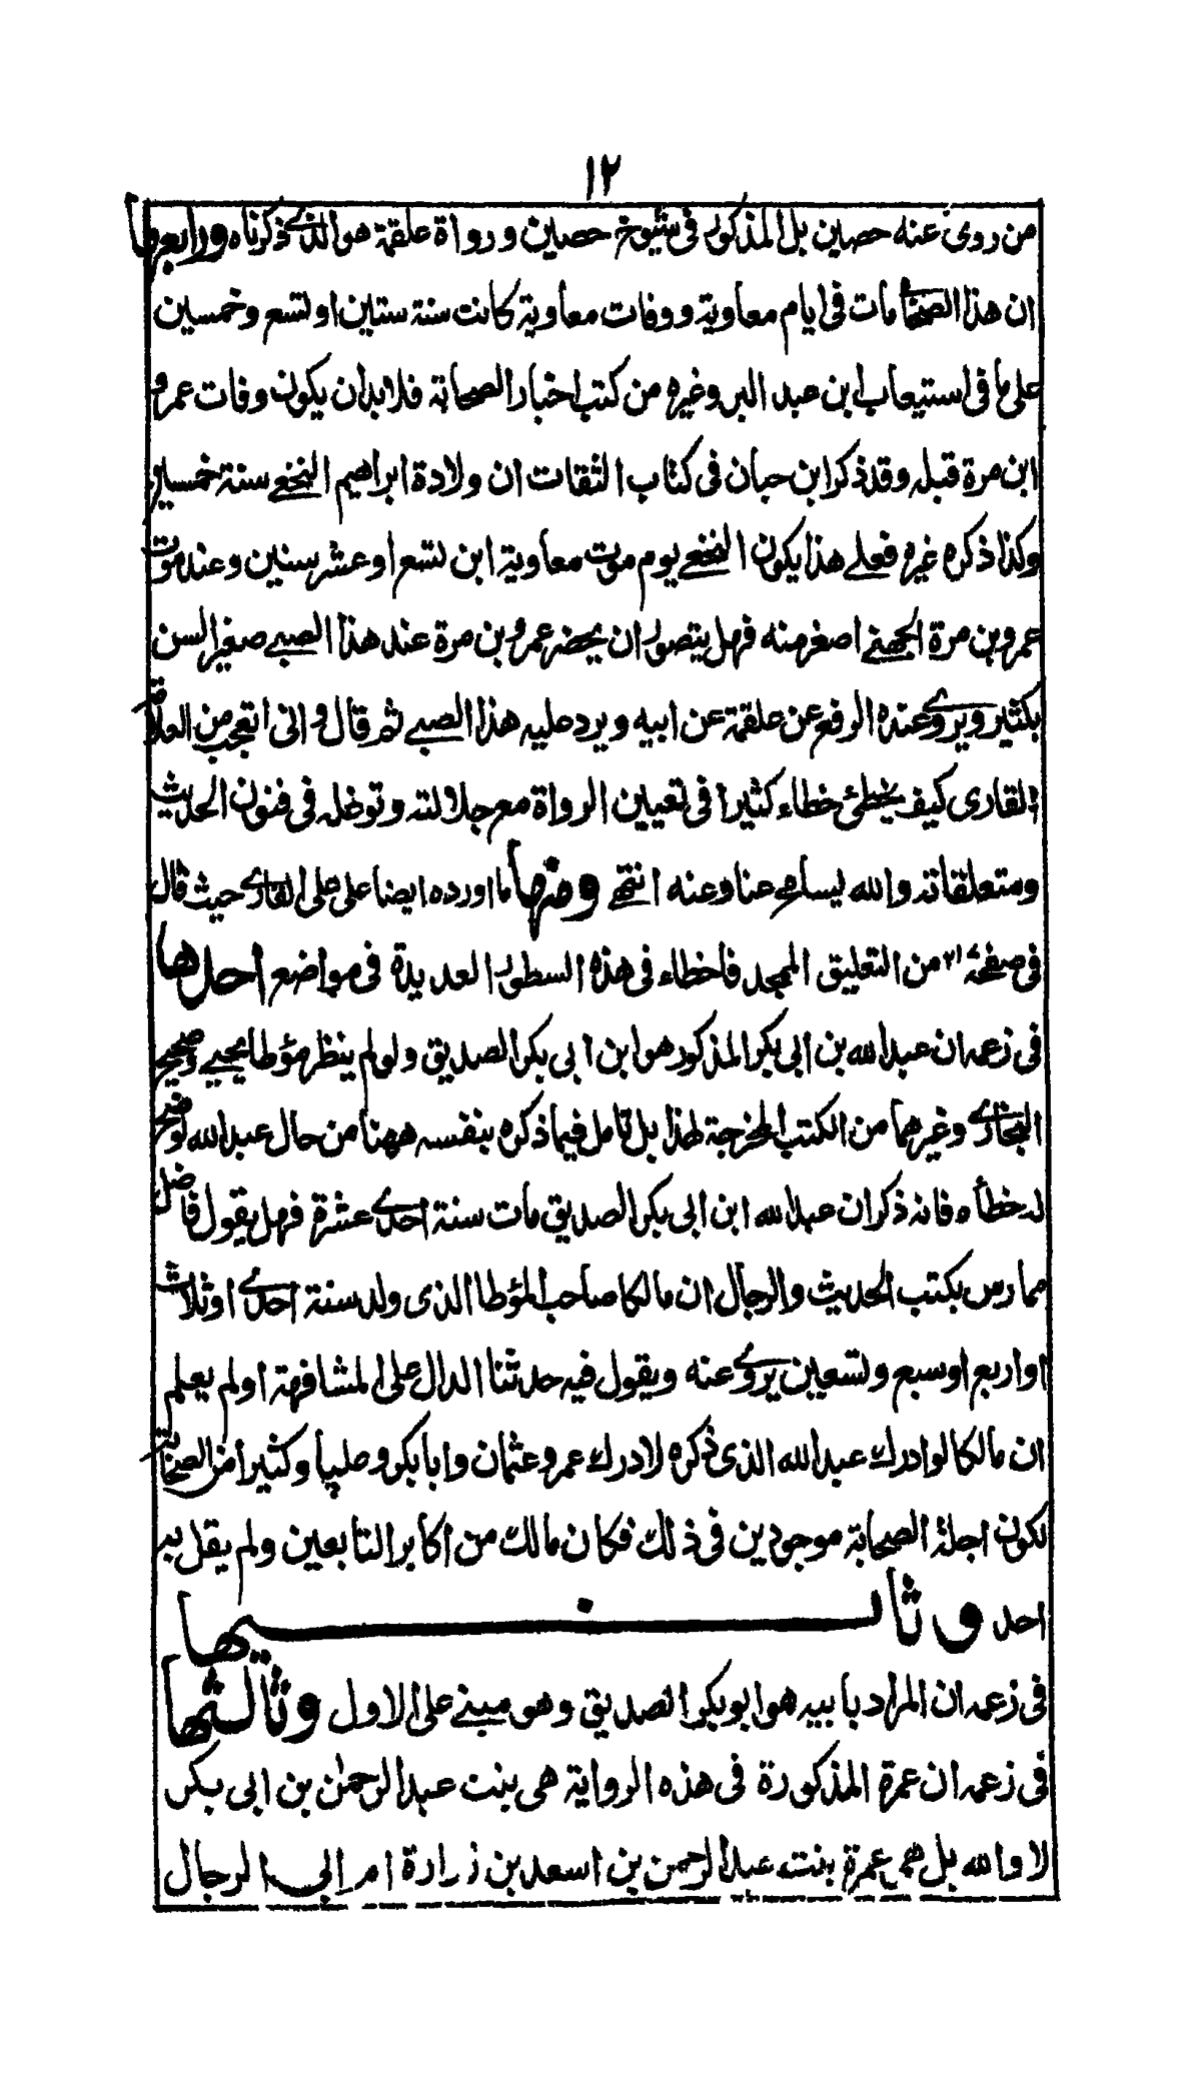 ١٢
من روى عنه حصين بل المذكور فى شيوخ حصين ورواة علقمة هو الذى ذكرناه ورابعها
ان هذا الصحابى مات فى ايام معاوية ووفات معاوية كانت سنة ستين او تسع وخمسين
على ما فى استيعاب ابن عبد البر وغيره من كتب اخبار الصحابة فلا بد ان يكون وفات عمرو
ابن مرة قبله وقد ذكر ابن حبان فى كتاب الثقات ان ولادة ابراهيم النخعى سنة خمسين
وكذا ذكره غيره فعلى هذا يكون النخعى يوم موت معاوية ابن تسع او عشر سنين وعند موت
عمرو بن مرة الجهنى اصغر منه فهل يتصور ان يحضر عمرو بن مرة عند هذا الصبى صغير السن
بكثير ويروى عنده الرفع عن علقمة عن ابيه ويرد عليه هذا الصبى ثم قال وانى اتعجب من العلامة
القارى كيف يخطئ خطاء كثيرا فى تعيين الرواة مع جلالته وتوغله فى فنون الحديث
ومتعلقاته والله يسامح عنا وعنه انتهى ومنها ما اورده ايضا على على القارى حيث قال
فى صفحة ٢١ من التعليق الممجد فاخطاء فى هذه السطور العديدة فى مواضع احدها
فى زعمه ان عبد الله بن ابى بكر المذكور هو ابن ابى بكر الصديق ولو لم ينظر مؤطا يحيى وصحيح
البخارى وغيرهما من الكتب المخرجة لهذا بل تامل فيما ذكره بنفسه ههنا من حال عبد الله لوضح
له خطأه فانه ذكر ان عبد الله ابن ابى بكر الصديق مات سنة احدى عشرة فهل يقول فاضل
ممارس بكتب الحديث والرجال ان مالكا صاحب المؤطا الذى ولد سنة احدى او ثلاث
او اربع او سبع وتسعين يروى عنه ويقول فيه حدثنا الدال على المشافهة اولم يعلم
ان مالكا لو ادرك عبد الله الذى ذكره لادرك عمر وعثمان وابا بكر وعليا وكثيرا من الصحابة
لكون اجلة الصحابة موجودين فى ذلك فكان مالك من اكابر التابعين ولم يقل به
احد وثانيها
فى زعمه ان المراد بابيه هو ابو بكر الصديق وهو مبنى على الاول وثالثها
فى زعمه ان عمرة المذكورة فى هذه الرواية هى بنت عبد الرحمن بن ابى بكر
لا والله بل هى عمرة بنت عبد الرحمن بن اسعد بن زرارة ام ابى الرجال